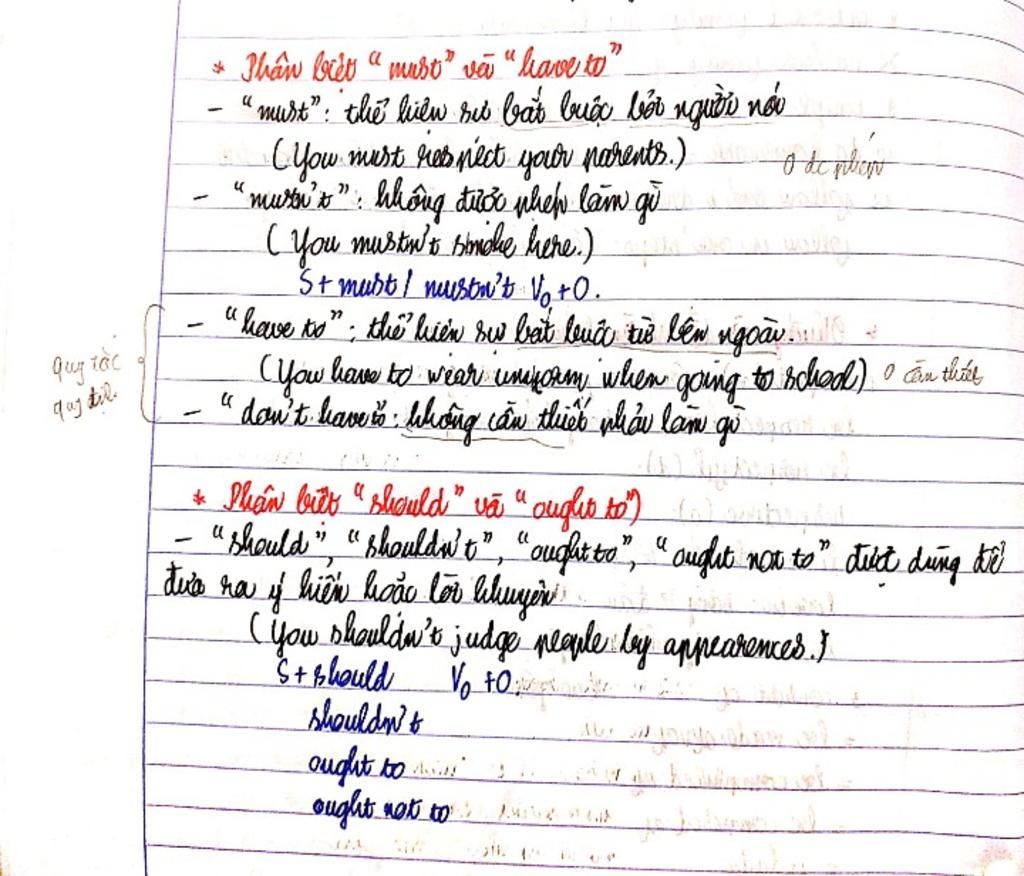 * Phân biệt "must" và "have to"
- "must": thể hiện sự bắt buộc bởi người nói
(You must respect your parents.)
0 đc phép
- "mustn't": không được phép làm gì
(You mustn't smoke here.)
S + must / mustn't V₀ + O.
- "have to": thể hiện sự bắt buộc từ bên ngoài.
quy tắc
(You have to wear uniform when going to school)
0 cần thiết
- "don't have to: không cần thiết phải làm gì
* Phân biệt "should" và "ought to")
- "should", "shouldn't", "ought to", "ought not to" được dùng để
đưa ra ý kiến hoặc lời khuyên
(You shouldn't judge people by appearences.)
S + should V₀ + O.
shouldn't
ought to
ought not to